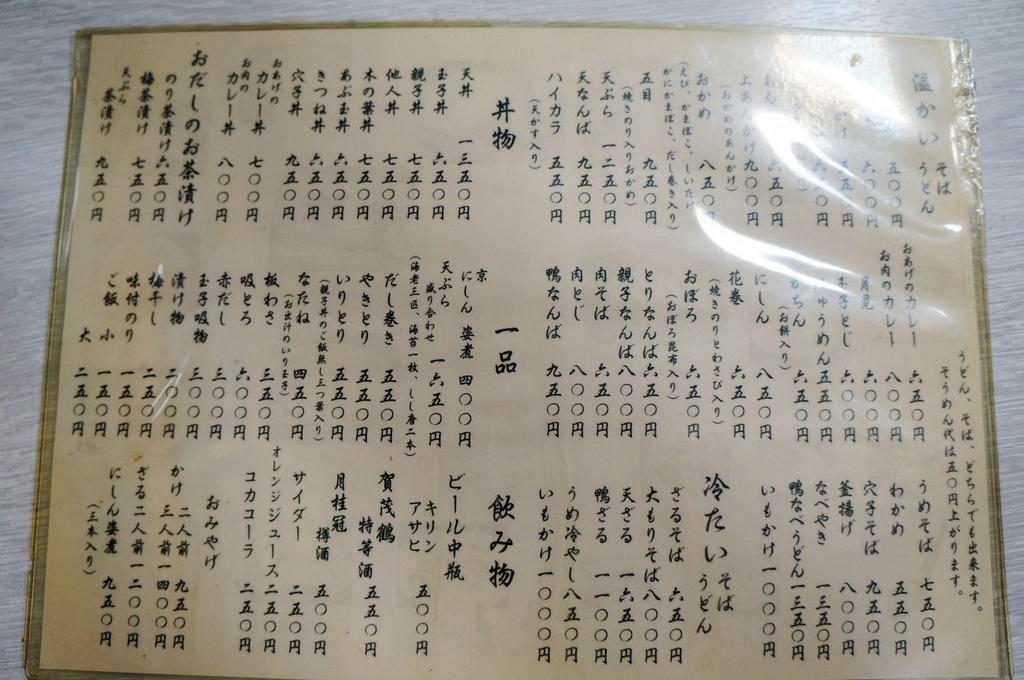 うどん、そば、どちらでも出来ます。
そうめん代は五〇円上がります。
温かい そば うどん
五〇〇円
六〇〇円
六五〇円
上あんかけ 九〇〇円
(おかめのあんかけ)
おかめ 八五〇円
(えび、かまぼこ、しいたけ
かにかまぼこ、だし巻き入り)
五目 九五〇円
(焼きのり入りおかめ)
天ぷら 一二五〇円
天なんば 九五〇円
ハイカラ 五五〇円
(天かす入り)
おあげのカレー 六五〇円
お肉のカレー 八〇〇円
月見 六〇〇円
玉子とじ 六〇〇円
にゅうめん 五五〇円
かちん 六五〇円
(お餅入り)
にしん 八五〇円
花巻 六五〇円
(焼きのりとわさび入り)
おぼろ 六五〇円
(おぼろ昆布入り)
とりなんば 六五〇円
親子なんば 八〇〇円
肉そば 六五〇円
肉とじ 八〇〇円
鴨なんば 九五〇円
うめそば 七五〇円
わかめ 五五〇円
穴子そば 九五〇円
釜揚げ 八〇〇円
なべやき 一三五〇円
鴨なべうどん 一三五〇円
いもかけ 一〇〇〇円
冷たい そば うどん
ざるそば 六五〇円
大もりそば 八〇〇円
天ざる 一六五〇円
鴨ざる 一一〇〇円
うめ冷やし 八五〇円
いもかけ 一〇〇〇円
丼物
天丼 一三五〇円
玉子丼 六五〇円
親子丼 七五〇円
他人丼 七五〇円
木の葉丼 七五〇円
あぶ玉丼 六五〇円
きつね丼 六五〇円
穴子丼 九五〇円
おあげの カレー丼 七〇〇円
お肉の カレー丼 八〇〇円
おだしのお茶漬け
のり茶漬け 六五〇円
梅茶漬け 七五〇円
天ぷら茶漬け 九五〇円
一品
京にしん 姿煮 四〇〇円
天ぷら 盛り合わせ 一六五〇円
(海老三匹、海苔一枚、しし唐二本)
だし巻き 五五〇円
やきとり 五五〇円
いりとり 五五〇円
(親子丼のご飯無し三つ葉入り)
なたね 四五〇円
(お出汁のいり玉子)
板わさ 三五〇円
吸とろ 六〇〇円
赤だし 三〇〇円
玉子吸物 三〇〇円
漬け物 二五〇円
梅干し 二五〇円
味付のり 一五〇円
ご飯 小 一五〇円
大 二五〇円
飲み物
ビール中瓶
キリン
アサヒ 五〇〇円
賀茂鶴
特等酒 五五〇円
月桂冠
樽酒 五〇〇円
サイダー 二五〇円
オレンジジュース 二五〇円
コカコーラ 二五〇円
おみやげ
かけ 二人前 九五〇円
三人前 一四〇〇円
ざる 二人前 一二〇〇円
にしん姿煮 九五〇円
(三本入り)